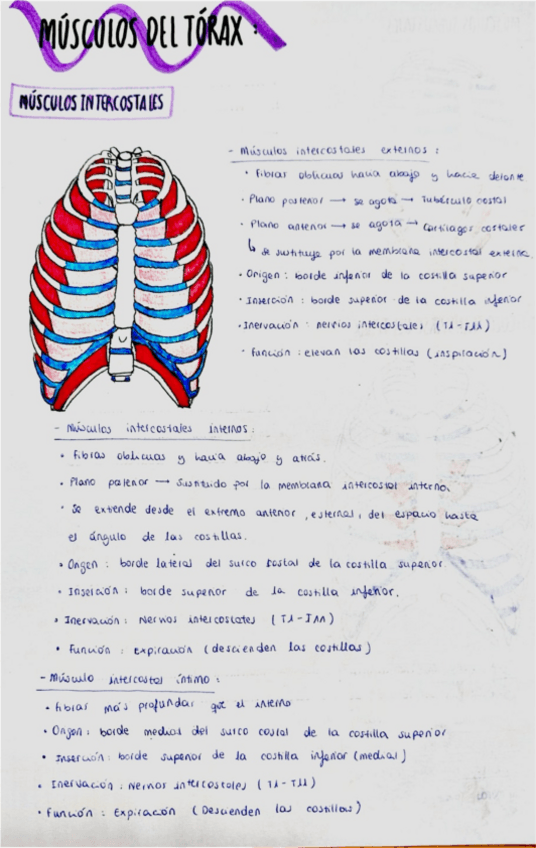 MÚSCULOS DEL TÓRAX :
MÚSCULOS INTERCOSTALES
- Músculos intercostales externos :
• Fibras oblicuas hacia abajo y hacia delante.
• Plano posterior → se agota → Tubérculo costal
• Plano anterior → se agota → Cartílagos costales
↳ se sustituye por la membrana intercostal externa.
• Origen : borde inferior de la costilla superior
• Inserción : borde superior de la costilla inferior
• Inervación : nervios intercostales (T1-T11)
• Función : elevan las costillas (inspiración)
- Músculos intercostales internos :
• Fibras oblicuas y hacia abajo y atrás.
• Plano posterior → Sustituido por la membrana intercostal interna.
• Se extiende desde el extremo anterior, esternal, del espacio hasta
el ángulo de las costillas.
• Origen : borde lateral del surco costal de la costilla superior.
• Inserción : borde superior de la costilla inferior.
• Inervación : Nervios intercostales (T1-T11)
• Función : Expiración (descienden las costillas)
- Músculo intercostal íntimo :
• Fibras más profundas que el interno
• Origen : borde medial del surco costal de la costilla superior
• Inserción : borde superior de la costilla inferior (medial)
• Inervación : Nervios intercostales (T1-T11)
• Función : Expiración (Descienden las costillas)